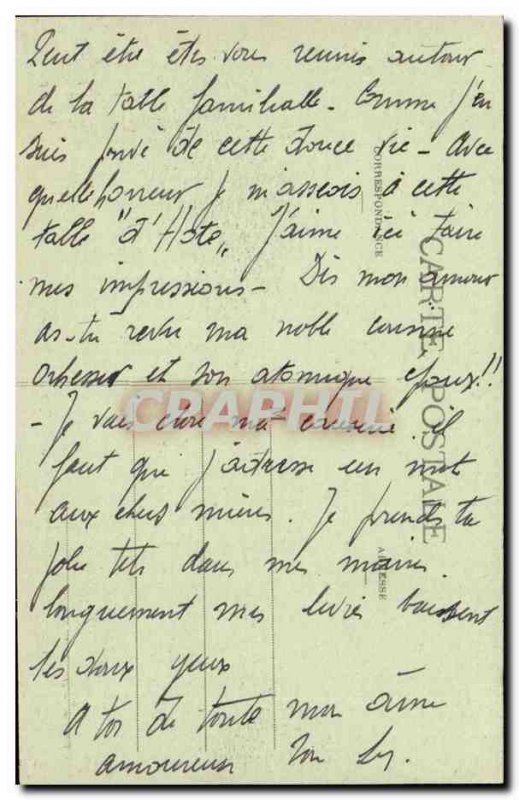 Peut être êtes vous reunis autour
de la table familialle. Comme j'en
suis privé de cette douce vie - Avec
quelle horreur je m'asseois à cette
table "d'Hote" J'aime ici taire
mes impressions - Dis mon amour
as-tu revu ma noble cousine
et son atomique époux!!
- Je vais ma il
faut que j'adresse un mot
aux chers miens. Je prends ta
jolie tete dans mes mains.
longuement mes levres baisent
tes doux yeux
A toi de toute mon âme
amoureuse Ton
CORRESPONDANCE
CARTE POSTALE
ADRESSE
CRAPHIL